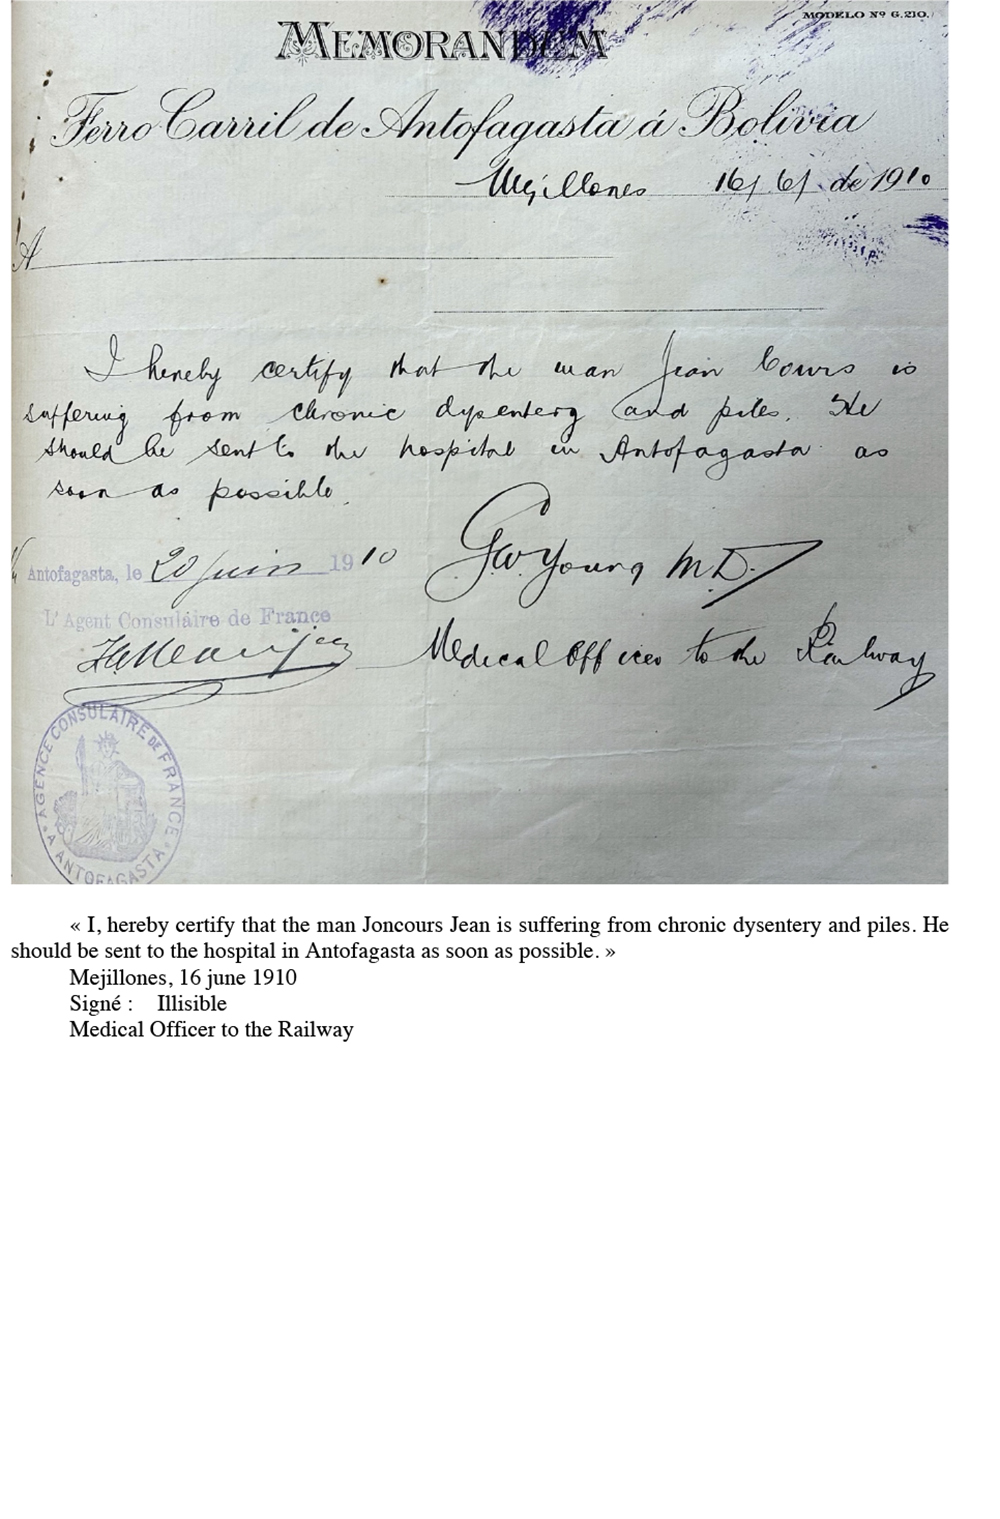 MODELO Nº G.210.
MEMORANDUM
Ferro Carril de Antofagasta á Bolivia
Mejillones 16/6/ de 1910
A
I hereby certify that the man Jean Cours is
suffering from chronic dysentery and piles. He
should be sent to the hospital in Antofagasta as
soon as possible.
GW Young M.D.
Antofagasta, le 20 juin 1910
L'Agent Consulaire de France
Medical Officer to the Railway
AGENCE CONSULAIRE DE FRANCE
A ANTOFAGASTA
« I, hereby certify that the man Joncours Jean is suffering from chronic dysentery and piles. He
should be sent to the hospital in Antofagasta as soon as possible. »
Mejillones, 16 june 1910
Signé : Illisible
Medical Officer to the Railway